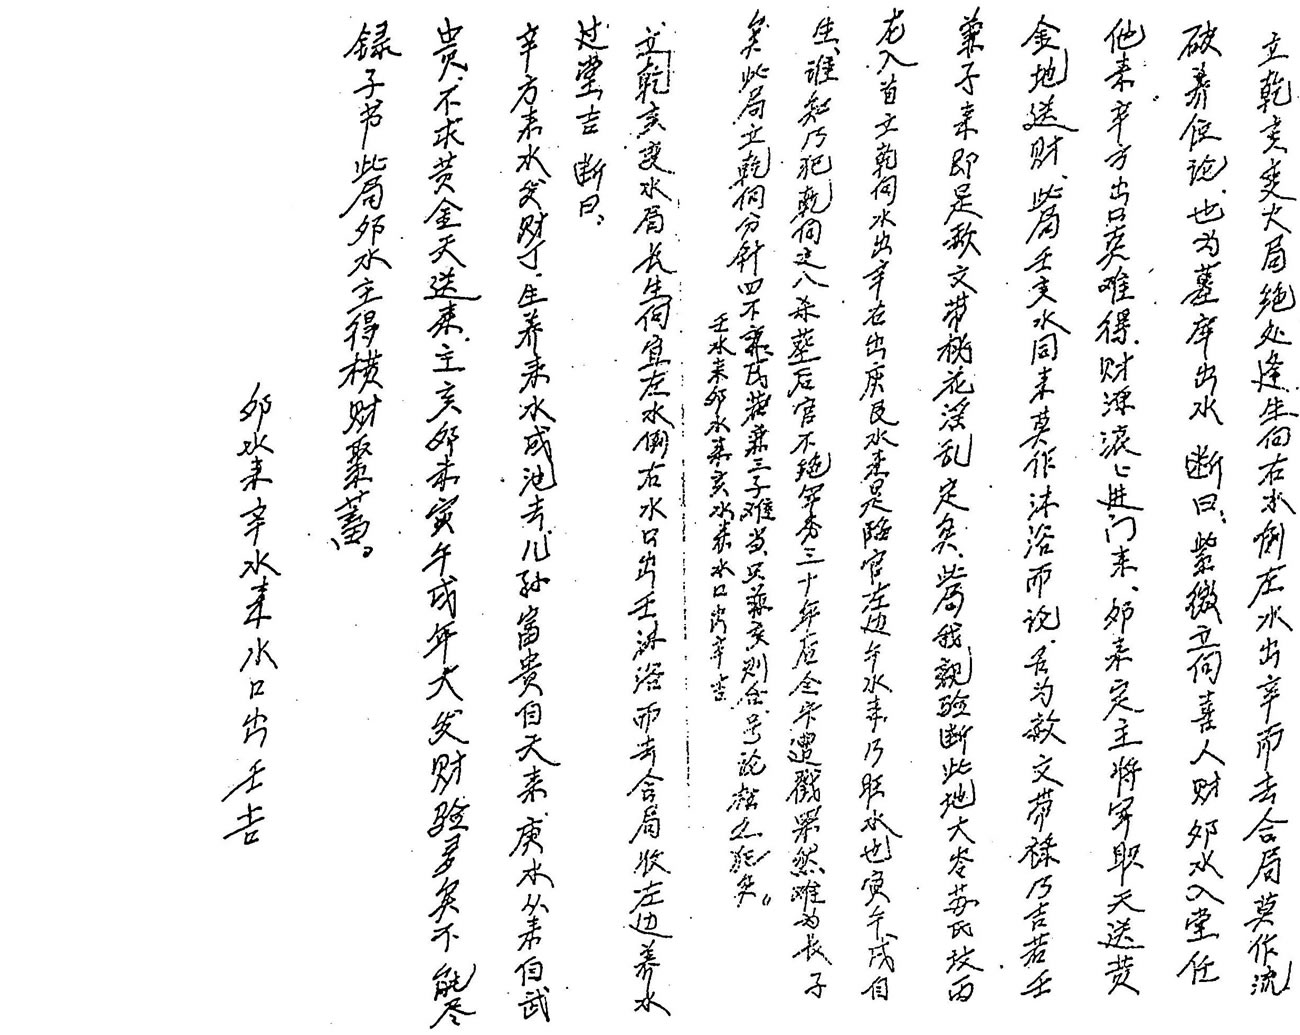 立乾亥变火局绝处逢生向右水倒左水出辛而去合局莫作流
破养位论、也为墓库出水 断曰：紫微立向喜人财 卯水入堂任
他来辛方出口莫难得、财源滚滚进门来、卯来定主将军职天送黄
金地送财、此局壬亥水同来莫作沐浴而论、名为救文带禄乃吉若壬
兼子来即是救文带桃花淫乱定矣、此局我亲验断此地大岺苏氏坟丙
龙入首立乾向水出辛在出庚艮水来是临官左边午水来乃旺水也寅午戌自
生、谁知乃犯乾向是八杀葬后官不绝军秀三十年应全家遭戮果然难为长子
矣此局立乾向分针四不兼 若兼三子难当只兼亥则合 号论
壬水来卯水来亥水来水口出辛吉
立乾亥变水局长生向宜左水倒右水口出壬沐浴而去合局收左边养水
过堂吉 断曰：
辛方来水发财丁、生养来水成池去、儿孙富贵自天来、庚水从来自武
贵、不求黄金天送来、主亥卯未寅午戌年大发财验多矣不能尽
録子书此局卯水主得横财聚蓄。
卯水来辛水来水口出壬吉